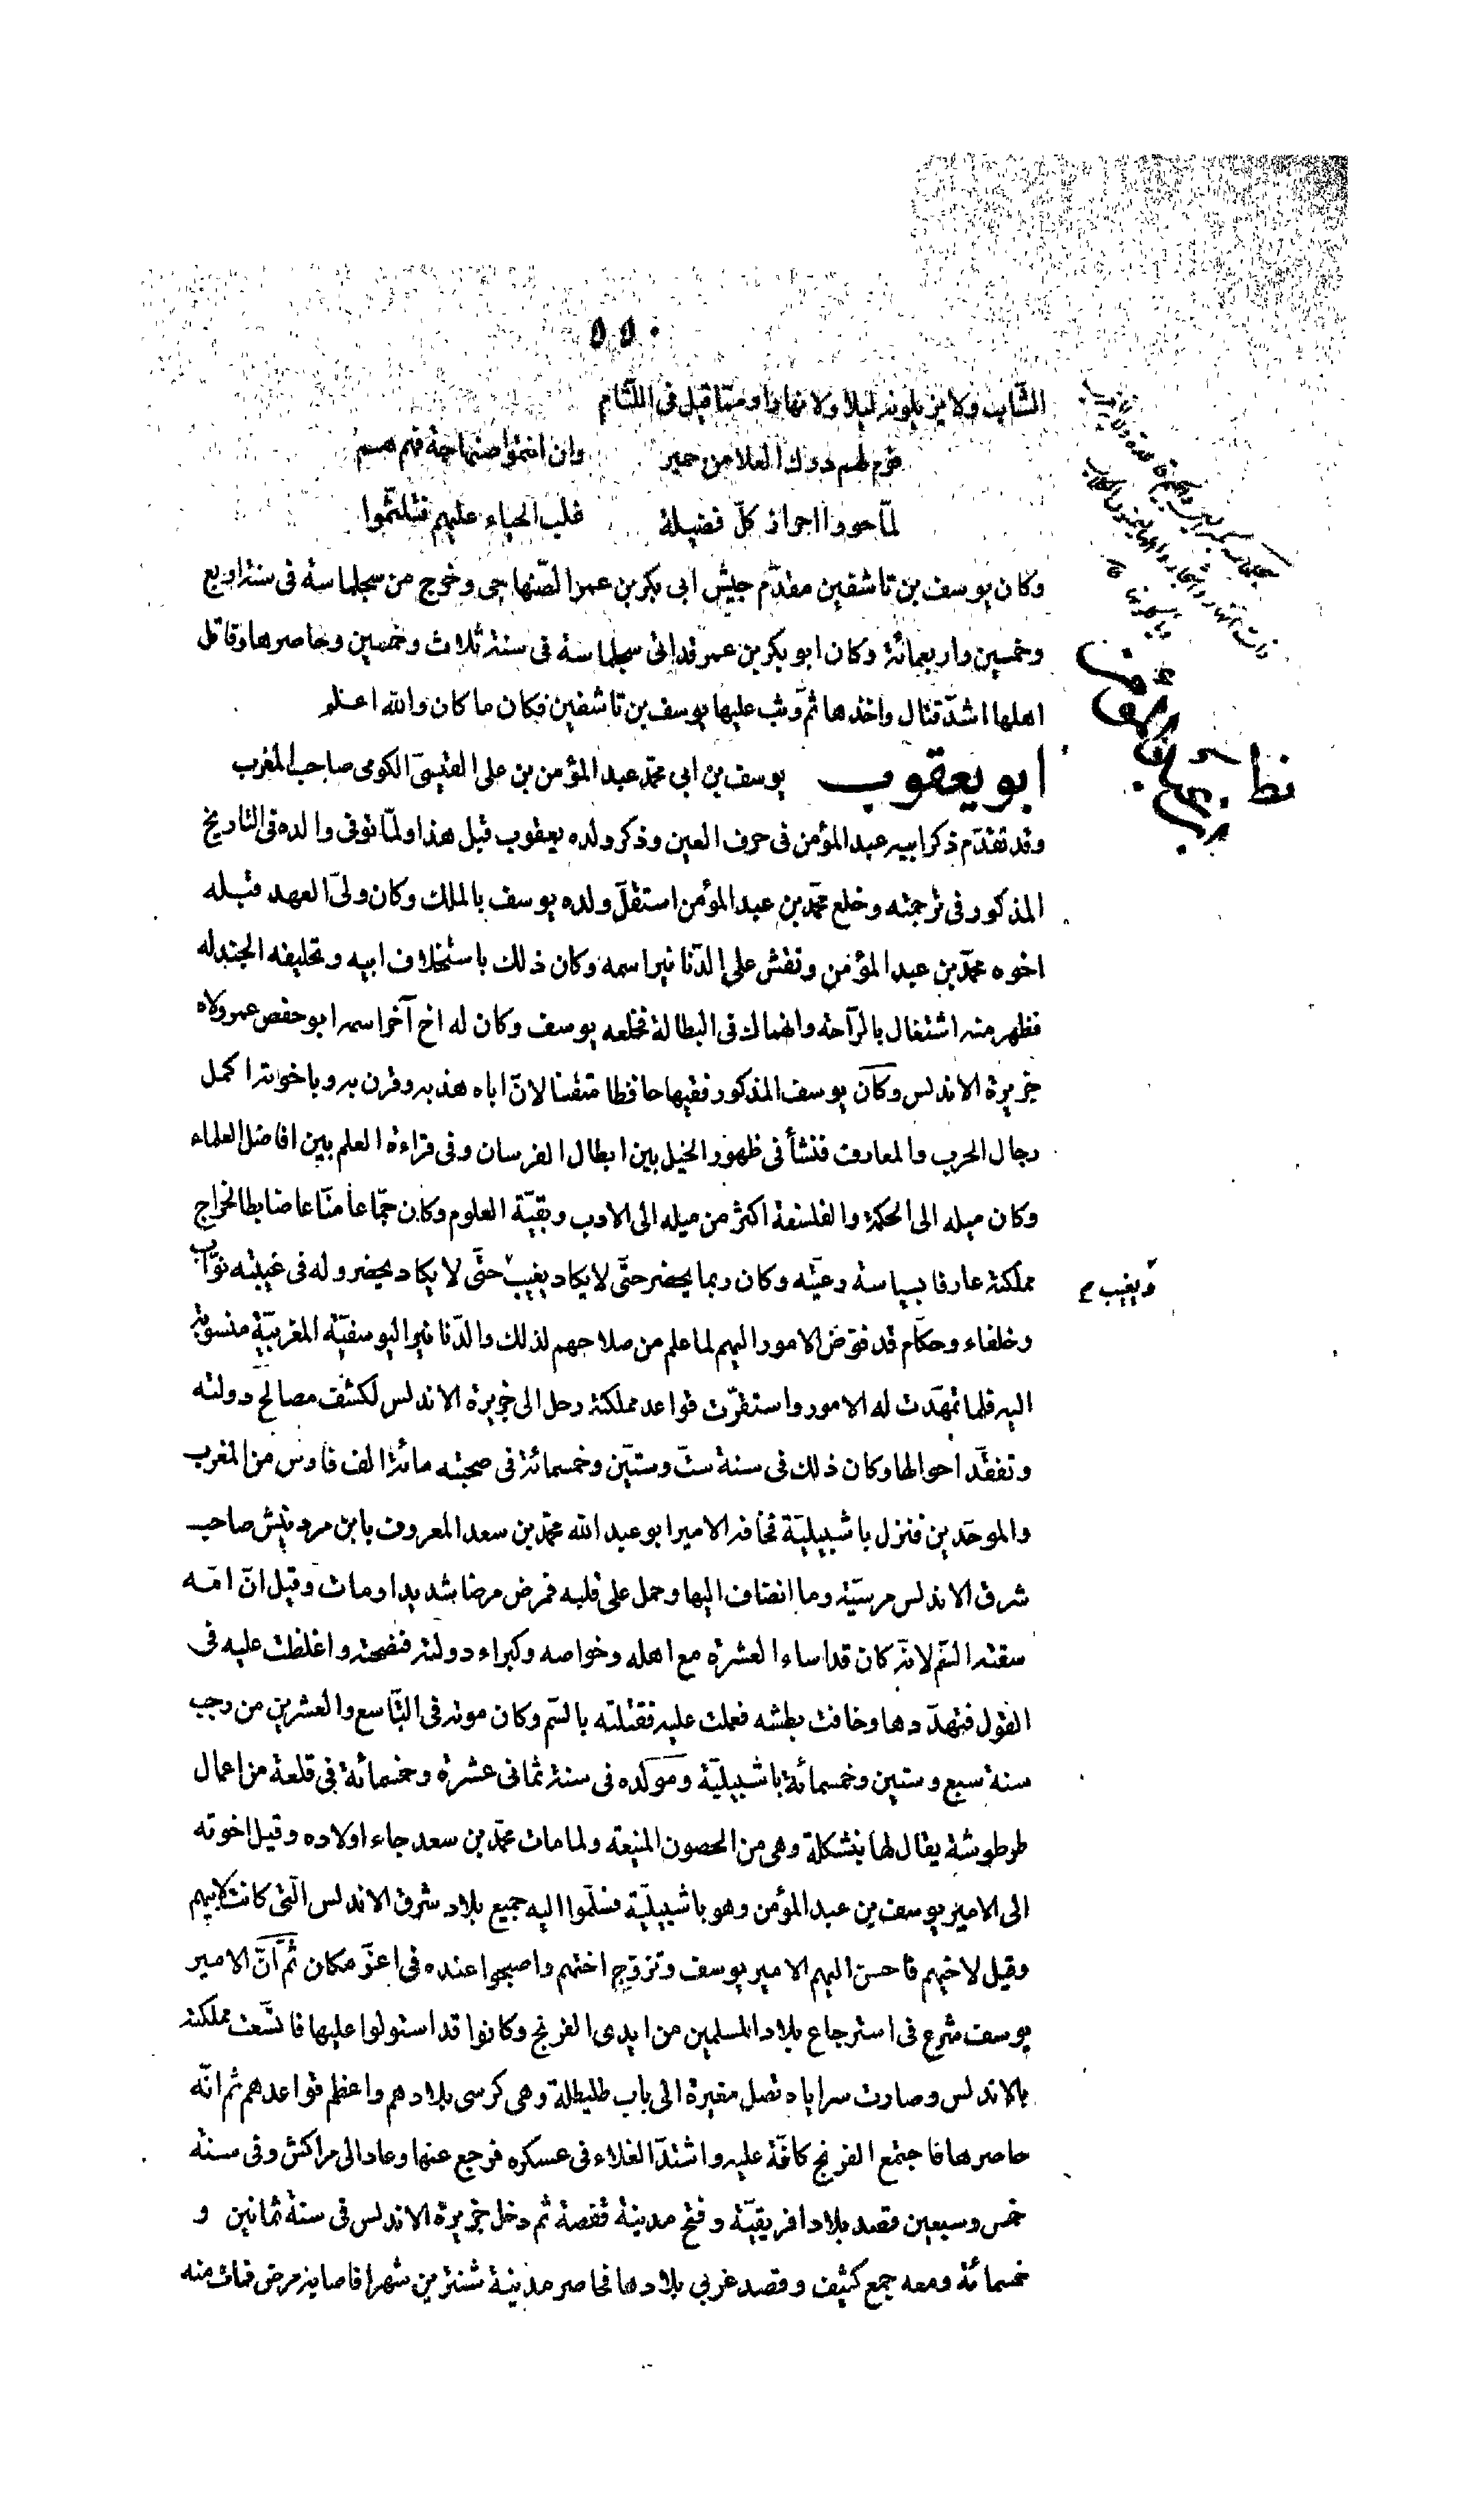 ٥٥٠
الشاب ولا يزيلونه ليلا ولا نهارا ومما قيل فى اللّثام
قوم لهم درك العلا من حمير وان انتموا صنهاجة فهم هم
لمّا حووا احراز كلّ فضيلة غلب الحياء عليهم فتلثّموا
وكان يوسف بن تاشفين مقدّم جيش ابى بكر بن عمر الصّنهاجى وخرج من سجلماسة فى سنة اربع
وخمسين واربعمائة وكان ابو بكر بن عمر قد اتى سجلماسة فى سنة ثلاث وخمسين وحاصرها وقاتل
اهلها اشدّ قتال واخذها ثم رتّب عليها يوسف بن تاشفين فكان ما كان والله اعلم
ابو يعقوب يوسف بن ابى محمّد عبد المؤمن بن على القيسىّ الكومى صاحب المغرب
وقد تقدّم ذكر ابيه عبد المؤمن فى حرف العين وذكر ولده يعقوب قبل هذا ولمّا توفى والده فى التاريخ
المذكور فى ترجمته وخلع محمّد بن عبد المؤمن استقلّ ولده يوسف بالملك وكان ولىّ العهد قبله
اخوه محمّد بن عبد المؤمن ونقش على الدّنانير اسمه وكان ذلك باستخلاف ابيه وتحليفه الجند له
فظهر منه اشتغال بالرّاحة وانهماك فى البطالة فخلعه يوسف وكان له اخ آخر اسمه ابو حفص عمر ولاه
جزيرة الاندلس وكان يوسف المذكور فقيها حافظا متقنا لانّ اباه هذبه وقرن به وباخوته اكمل
رجال الحرب والمعارف فنشأ فى ظهور الخيل بين ابطال الفرسان وفى قراءة العلم بين افاضل العلماء
وكان ميله الى الحكمة والفلسفة اكثر من ميله الى الادب وبقيّة العلوم وكان جمّاعا منّاعا ضابطا لخراج
مملكته عارفا بسياسة رعيّته وكان ربما يحضر حتّى لا يكاد يغيب حتّى لا يكاد يحضر وله فى غيبته نوّاب
ويغيب
وخلفاء وحكّام قد فوّض الامور اليهم لما علم من صلاحهم لذلك والدّنانير اليوسفيّة المغربيّة منسوبة
اليه فلما تمهّدت له الامور واستقرّت قواعد مملكته رحل الى جزيرة الاندلس لكشف مصالح دولته
وتفقّد احوالها وكان ذلك فى سنة ستّ وستّين وخمسمائة فى صحبته مائة الف فارس من المغرب
والموحّدين فنزل باشبيليّة فخافه الامير ابو عبد الله محمّد بن سعد المعروف بابن مردنيش صاحب
شرق الاندلس مرسيّة وما انضاف اليها وحمل على قلبه فمرض مرضا شديدا ومات وقيل انّ امّه
سقته السّم لانّه كان قد اساء العشرة مع اهله وخواصه وكبراء دولته فنصحته واغلظت عليه فى
القول فتهدّدها وخافت بطشه فعملت عليه فقتلته بالسّم وكان موته فى التّاسع والعشرين من رجب
سنة سبع وستين وخمسمائة باشبيليّة ومولده فى سنة ثمانى عشرة وخمسمائة فى قلعة من اعمال
طرطوشة يقال لها بنشكلة وهى من الحصون المنيعة ولما مات محمّد بن سعد جاء اولاده وقيل اخوته
الى الامير يوسف بن عبد المؤمن وهو باشبيليّة فسلّموا اليه جميع بلاد شرق الاندلس الّتى كانت لابيهم
وقيل لاخيهم فاحسن اليهم الامير يوسف وتزوّج اختهم واصبحوا عنده فى اعزّ مكان ثم انّ الامير
يوسف شرع فى استرجاع بلاد المسلمين من ايدى الفرنج وكانوا قد استولوا عليها فاتّسعت مملكته
بالاندلس وصارت سراياه تصل مغيرة الى باب طليطلة وهى كرسى بلادهم واعظم قواعدهم ثم انّه
حاصرها فاجتمع الفرنج كافّة عليه واشتدّ الغلاء فى عسكره فرجع عنها وعاد الى مراكش وفى سنة
خمس وسبعين قصد بلاد افريقيّة وفتح مدينة قفصة ثم دخل جزيرة الاندلس فى سنة ثمانين و
خمسمائة ومعه جمع كثيف وقصد غربى بلادها فحاصر مدينة شنترين شهرا فاصابه مرض فمات منه